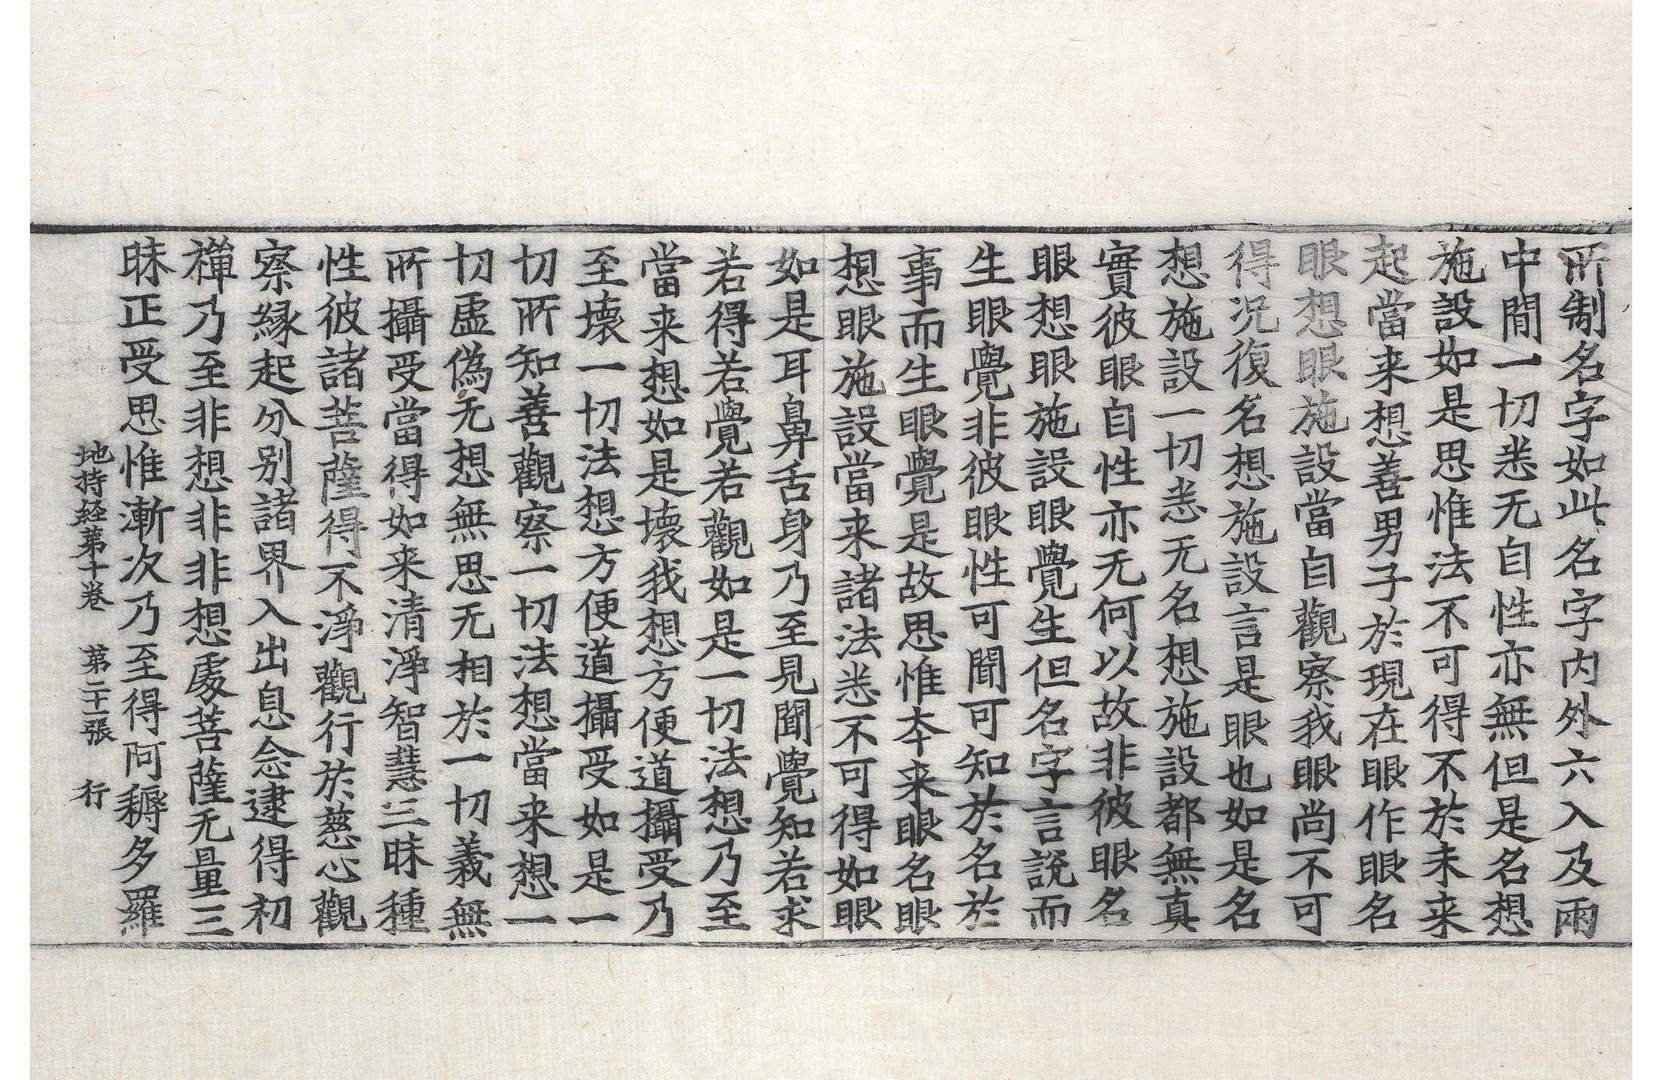 所制名字如此名字内外六入及兩
中間一切悉无自性亦無但是名想
施設如是思惟法不可得不於未来
起當来想善男子於現在眼作眼名
眼想眼施設當自觀察我眼尚不可
得况復名想施設言是眼也如是名
想施設一切悉无名想施設都無真
實彼眼自性亦无何以故非彼眼名
眼想眼施設眼覺生但名字言說而
生眼覺非彼眼性可聞可知於名於
事而生眼覺是故思惟本来眼名眼
想眼施設當来諸法悉不可得如眼
如是耳鼻舌身乃至見聞覺知若求
若得若覺若觀如是一切法想乃至
當来想如是壞我想方便道攝受乃
至壞一切法想方便道攝受如是一
切所知善觀察一切法想當来想一
切虛偽无想無思无相於一切義無
所攝受當得如来清淨智慧三昧種
性彼諸菩薩得不淨觀行於慈心觀
察緣起分别諸界入出息念逮得初
禪乃至非想非非想處菩薩无量三
昧正受思惟漸次乃至得阿耨多羅
地持经第十卷 第二十一張 行